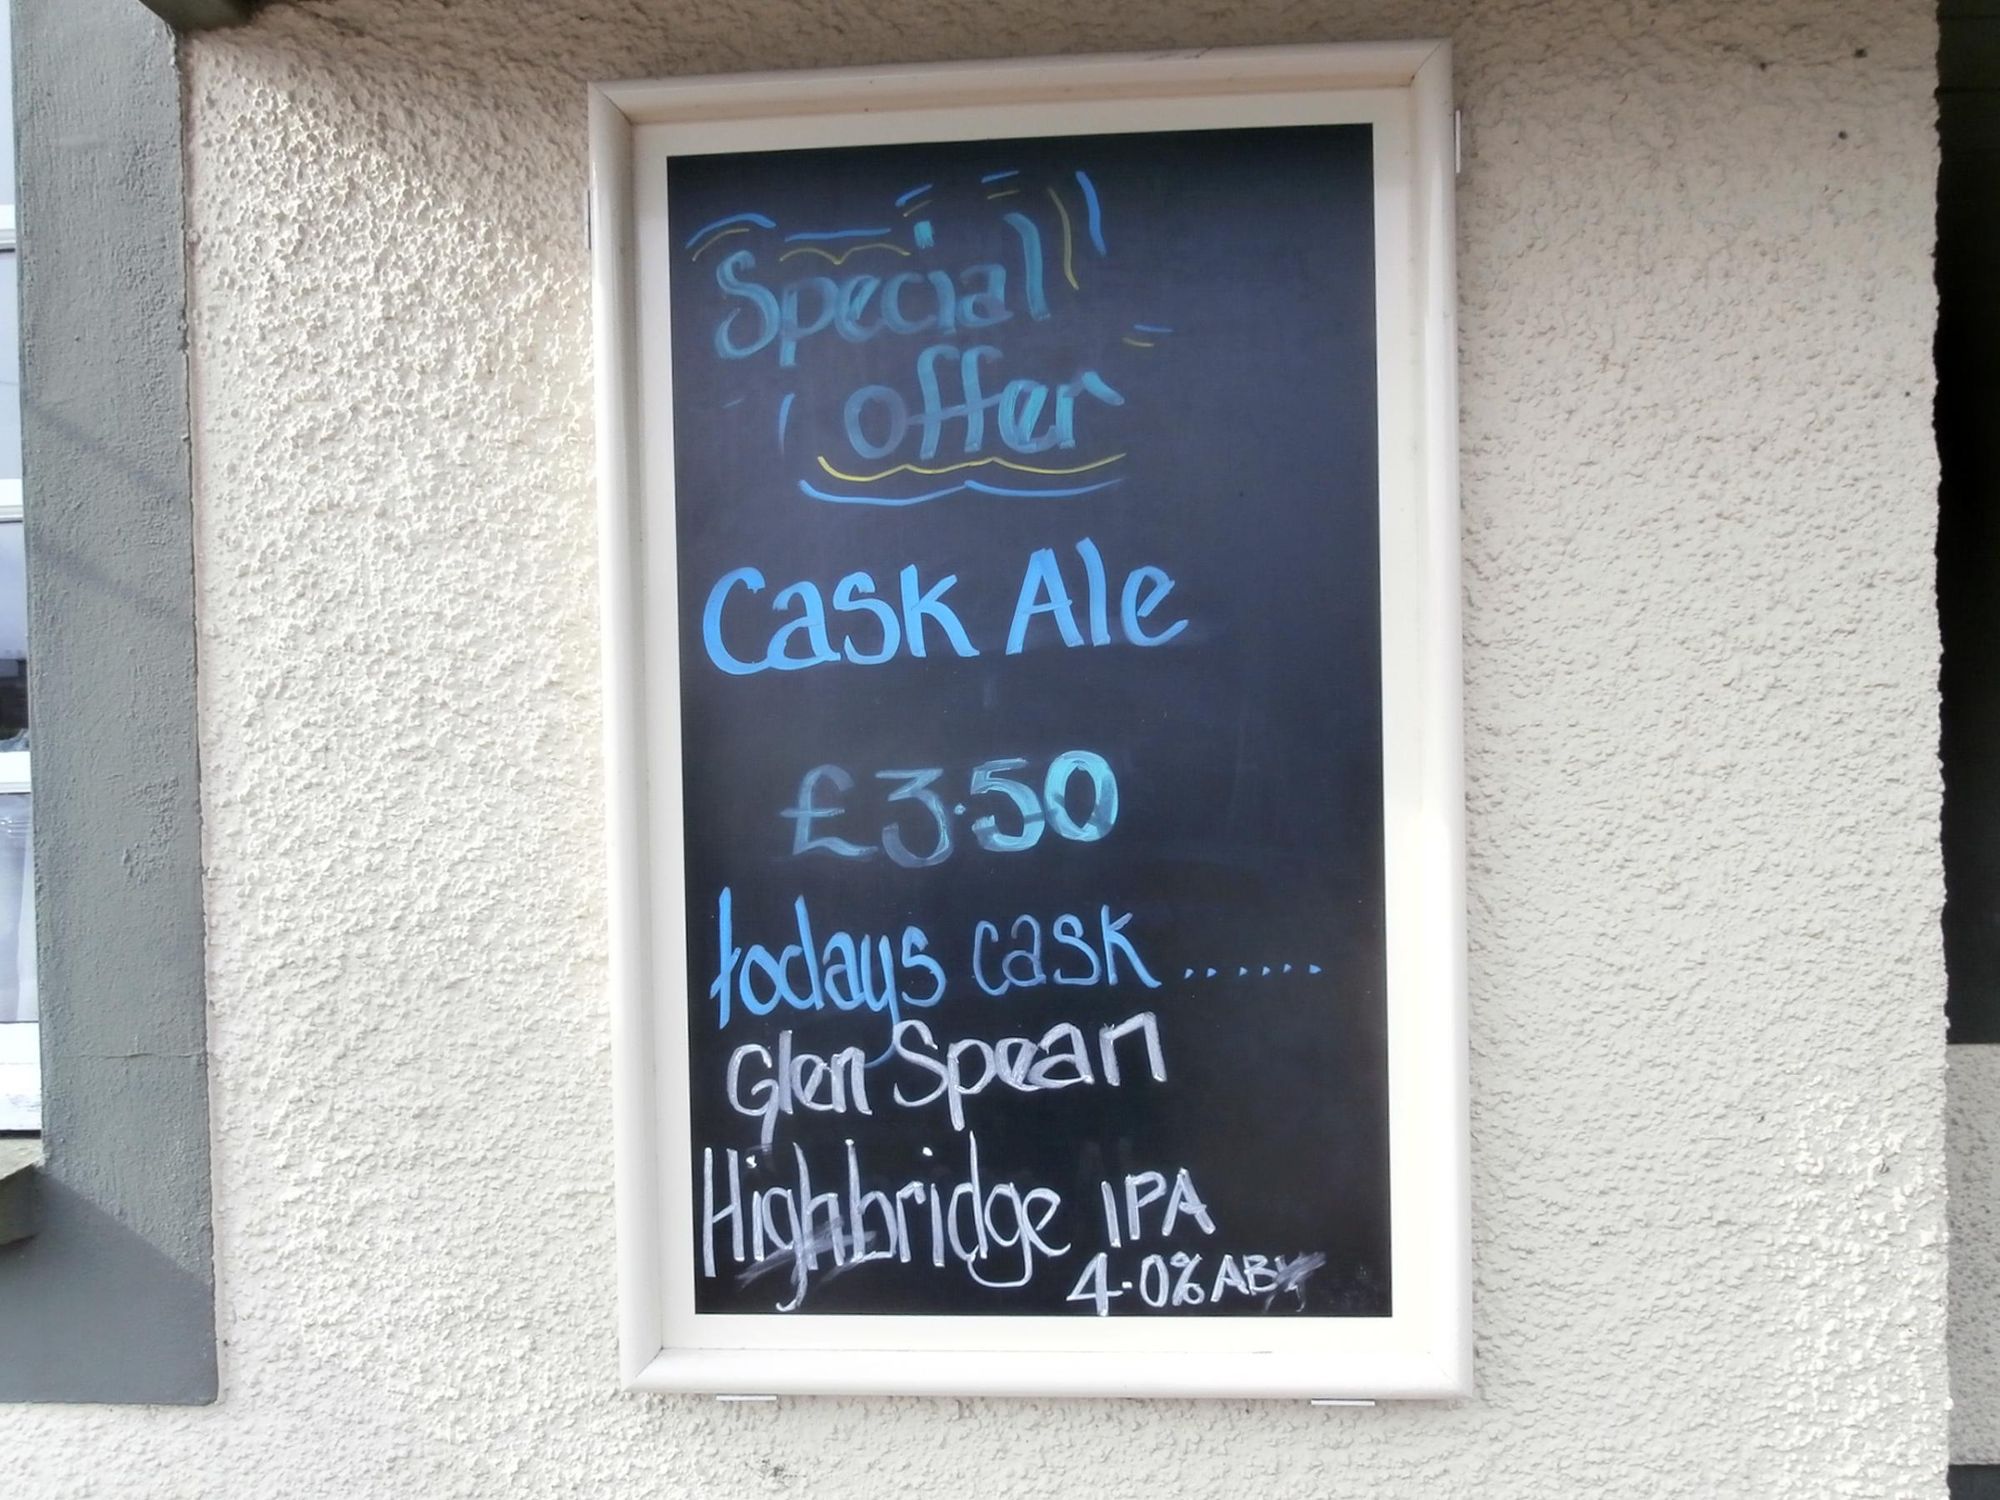 Special
offer
Cask Ale
£3.50
todays cask .......
Glen Spean
Highbridge IPA
4.0% ABV